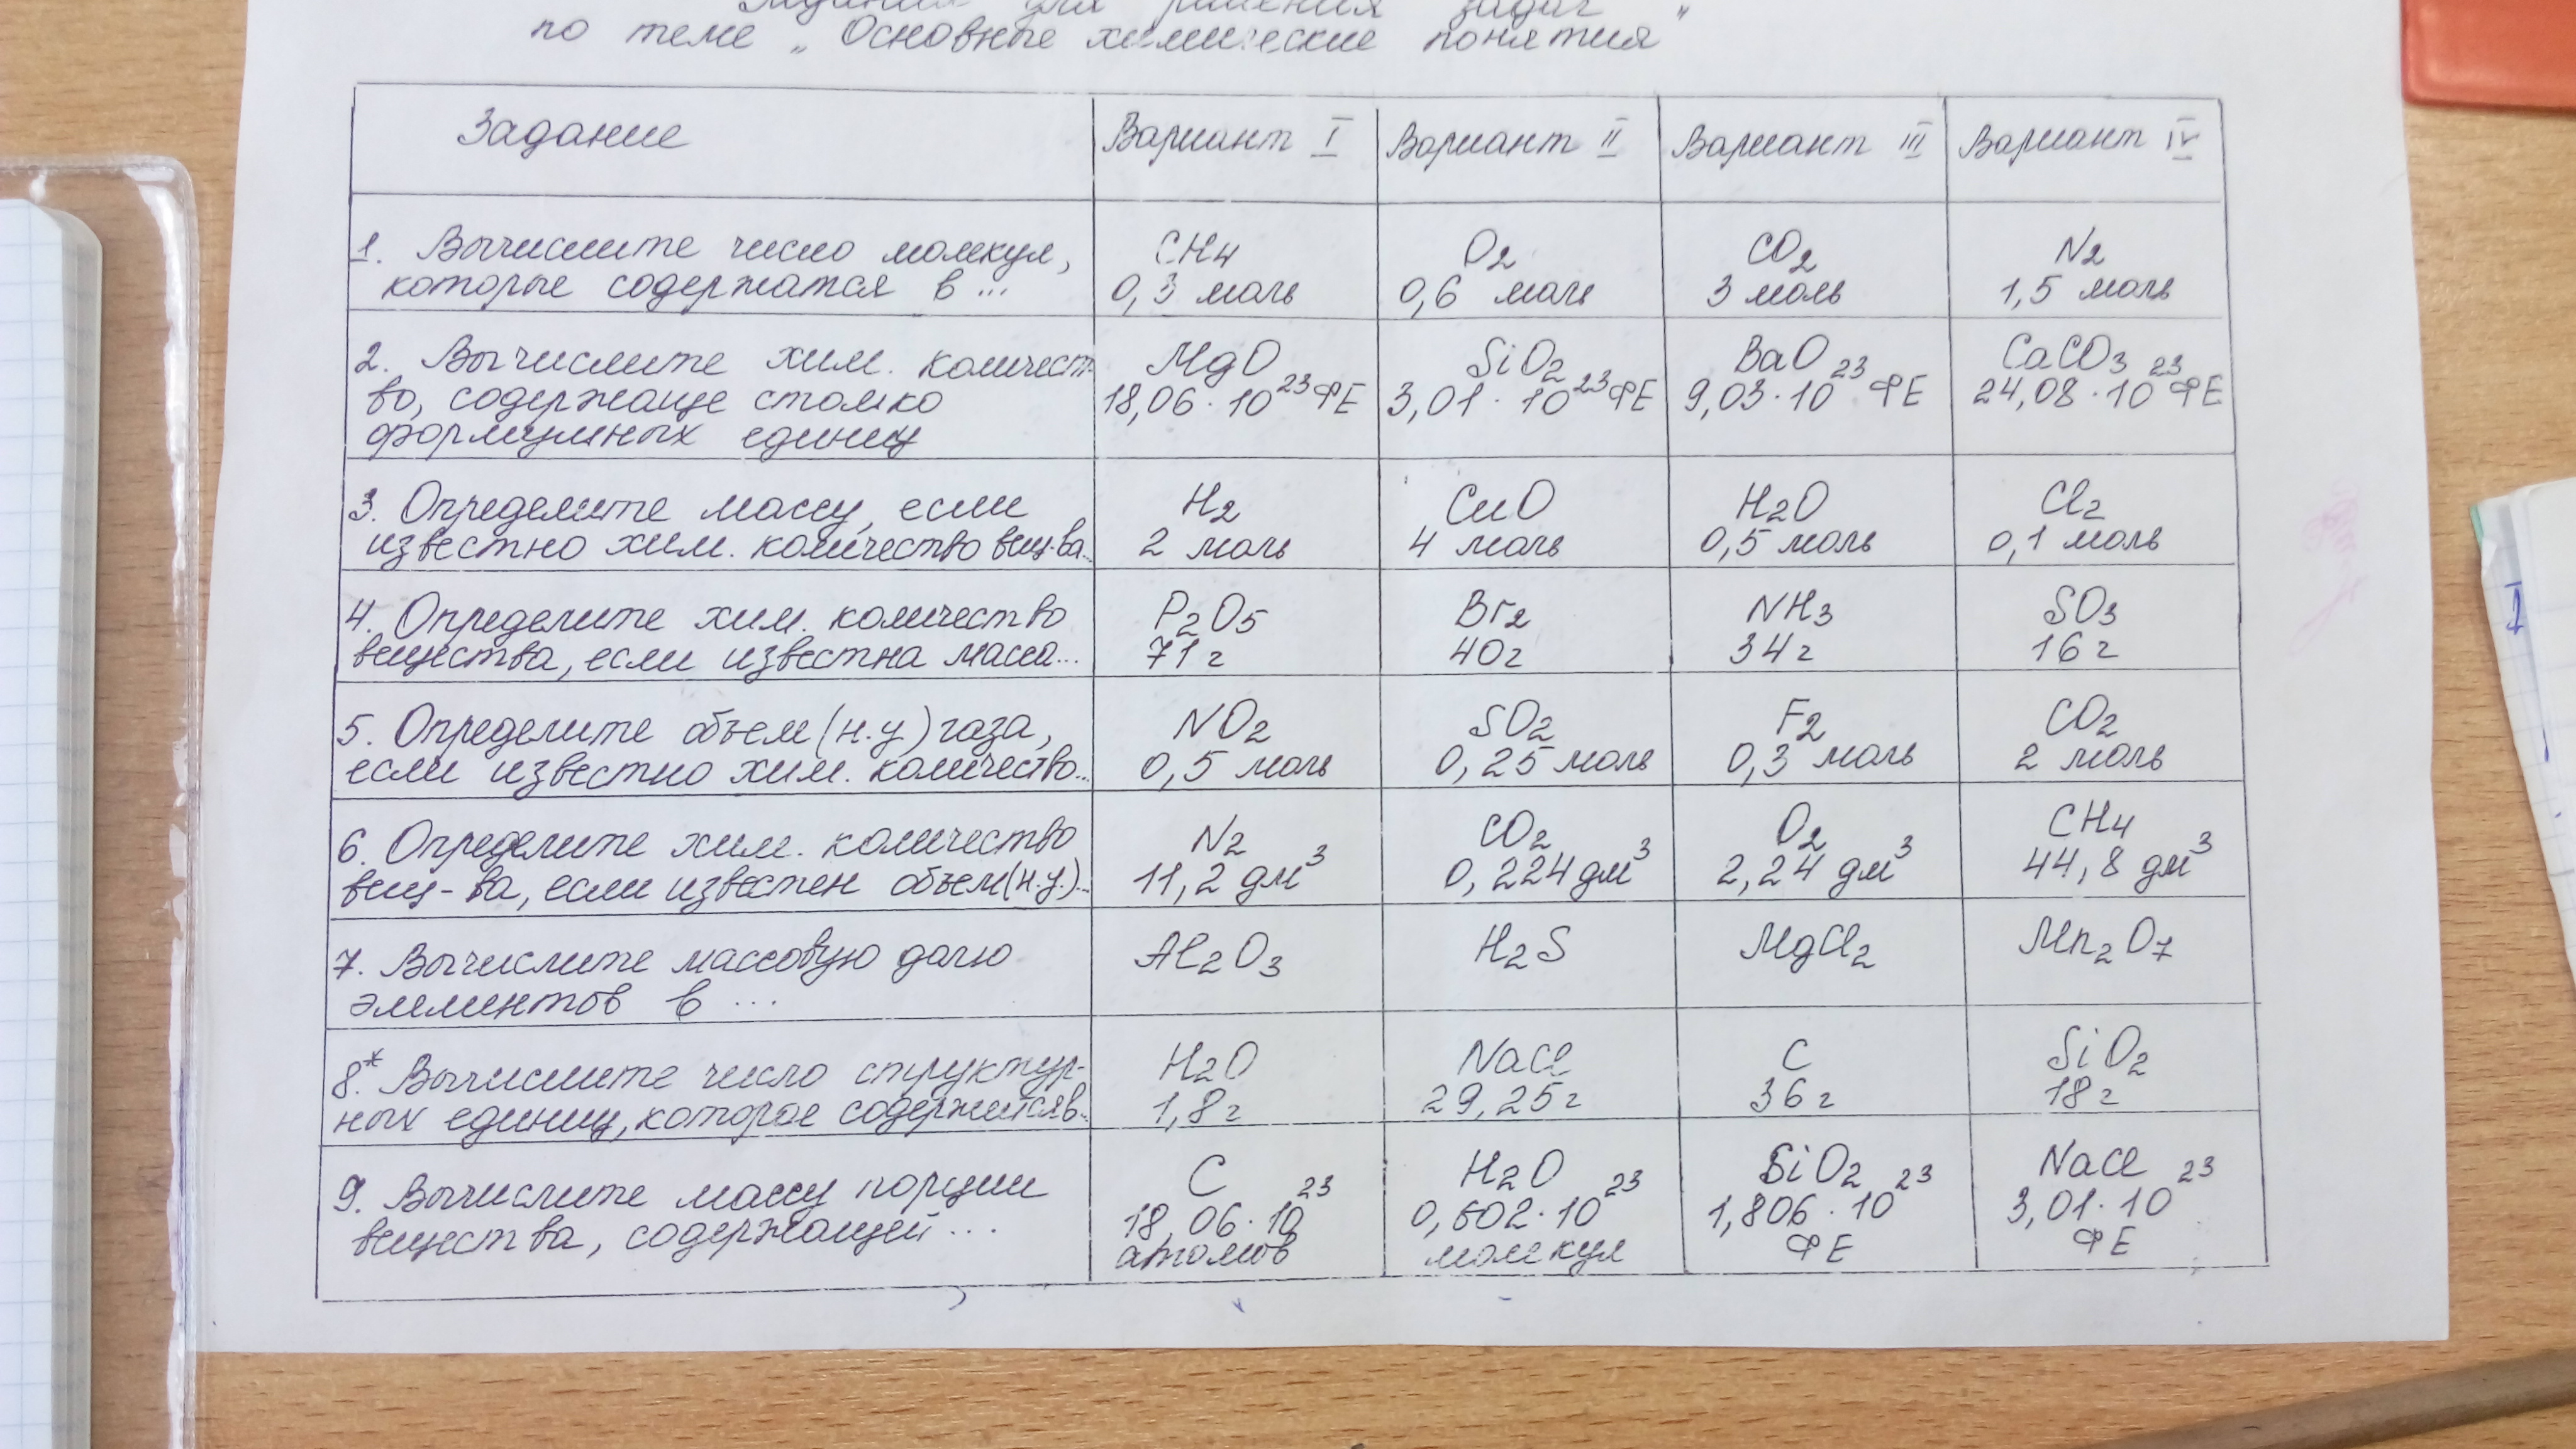 Задания для решения задач
по теме „Основные химические понятия"
Задание
Вариант I
Вариант II
Вариант III
Вариант IV
1. Вычислите число молекул,
которые содержатся в ...
CH4
0,3 моль
O2
0,6 моль
CO2
3 моль
N2
1,5 моль
2. Вычислите хим. количест-
во, содержаще столько
формульных единиц
MgO
18,06·10²³ ФЕ
SiO2
3,01·10²³ ФЕ
BaO
9,03·10²³ ФЕ
CaCO3
24,08·10²³ ФЕ
3. Определите массу, если
известно хим. количество вещ-ва...
H2
2 моль
CuO
4 моль
H2O
0,5 моль
Cl2
0,1 моль
4. Определите хим. количество
вещества, если известна масса...
P2O5
71 г
Br2
40 г
NH3
34 г
SO3
16 г
5. Определите объем (н.у) газа,
если известно хим. количество...
NO2
0,5 моль
SO2
0,25 моль
F2
0,3 моль
CO2
2 моль
6. Определите хим. количество
вещ-ва, если известен объем (н.у.)...
N2
11,2 дм³
CO2
0,224 дм³
O2
2,24 дм³
CH4
44,8 дм³
7. Вычислите массовую долю
элементов в ...
Al2O3
H2S
MgCl2
Mn2O7
8*. Вычислите число структур-
ных единиц, которое содержится в...
H2O
1,8 г
NaCl
29,25 г
C
36 г
SiO2
18 г
9. Вычислите массу порции
вещества, содержащей ...
C
18,06·10²³
атомов
H2O
0,602·10²³
молекул
SiO2
1,806·10²³
ФЕ
NaCl
3,01·10²³
ФЕ